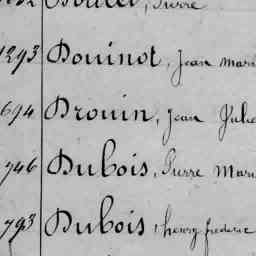 Pierre
1293 Douinot, Jean Mari
694 Drouin, Jean Julie
746 Dubois, Pierre Mari
793 Dubois, henry frederic